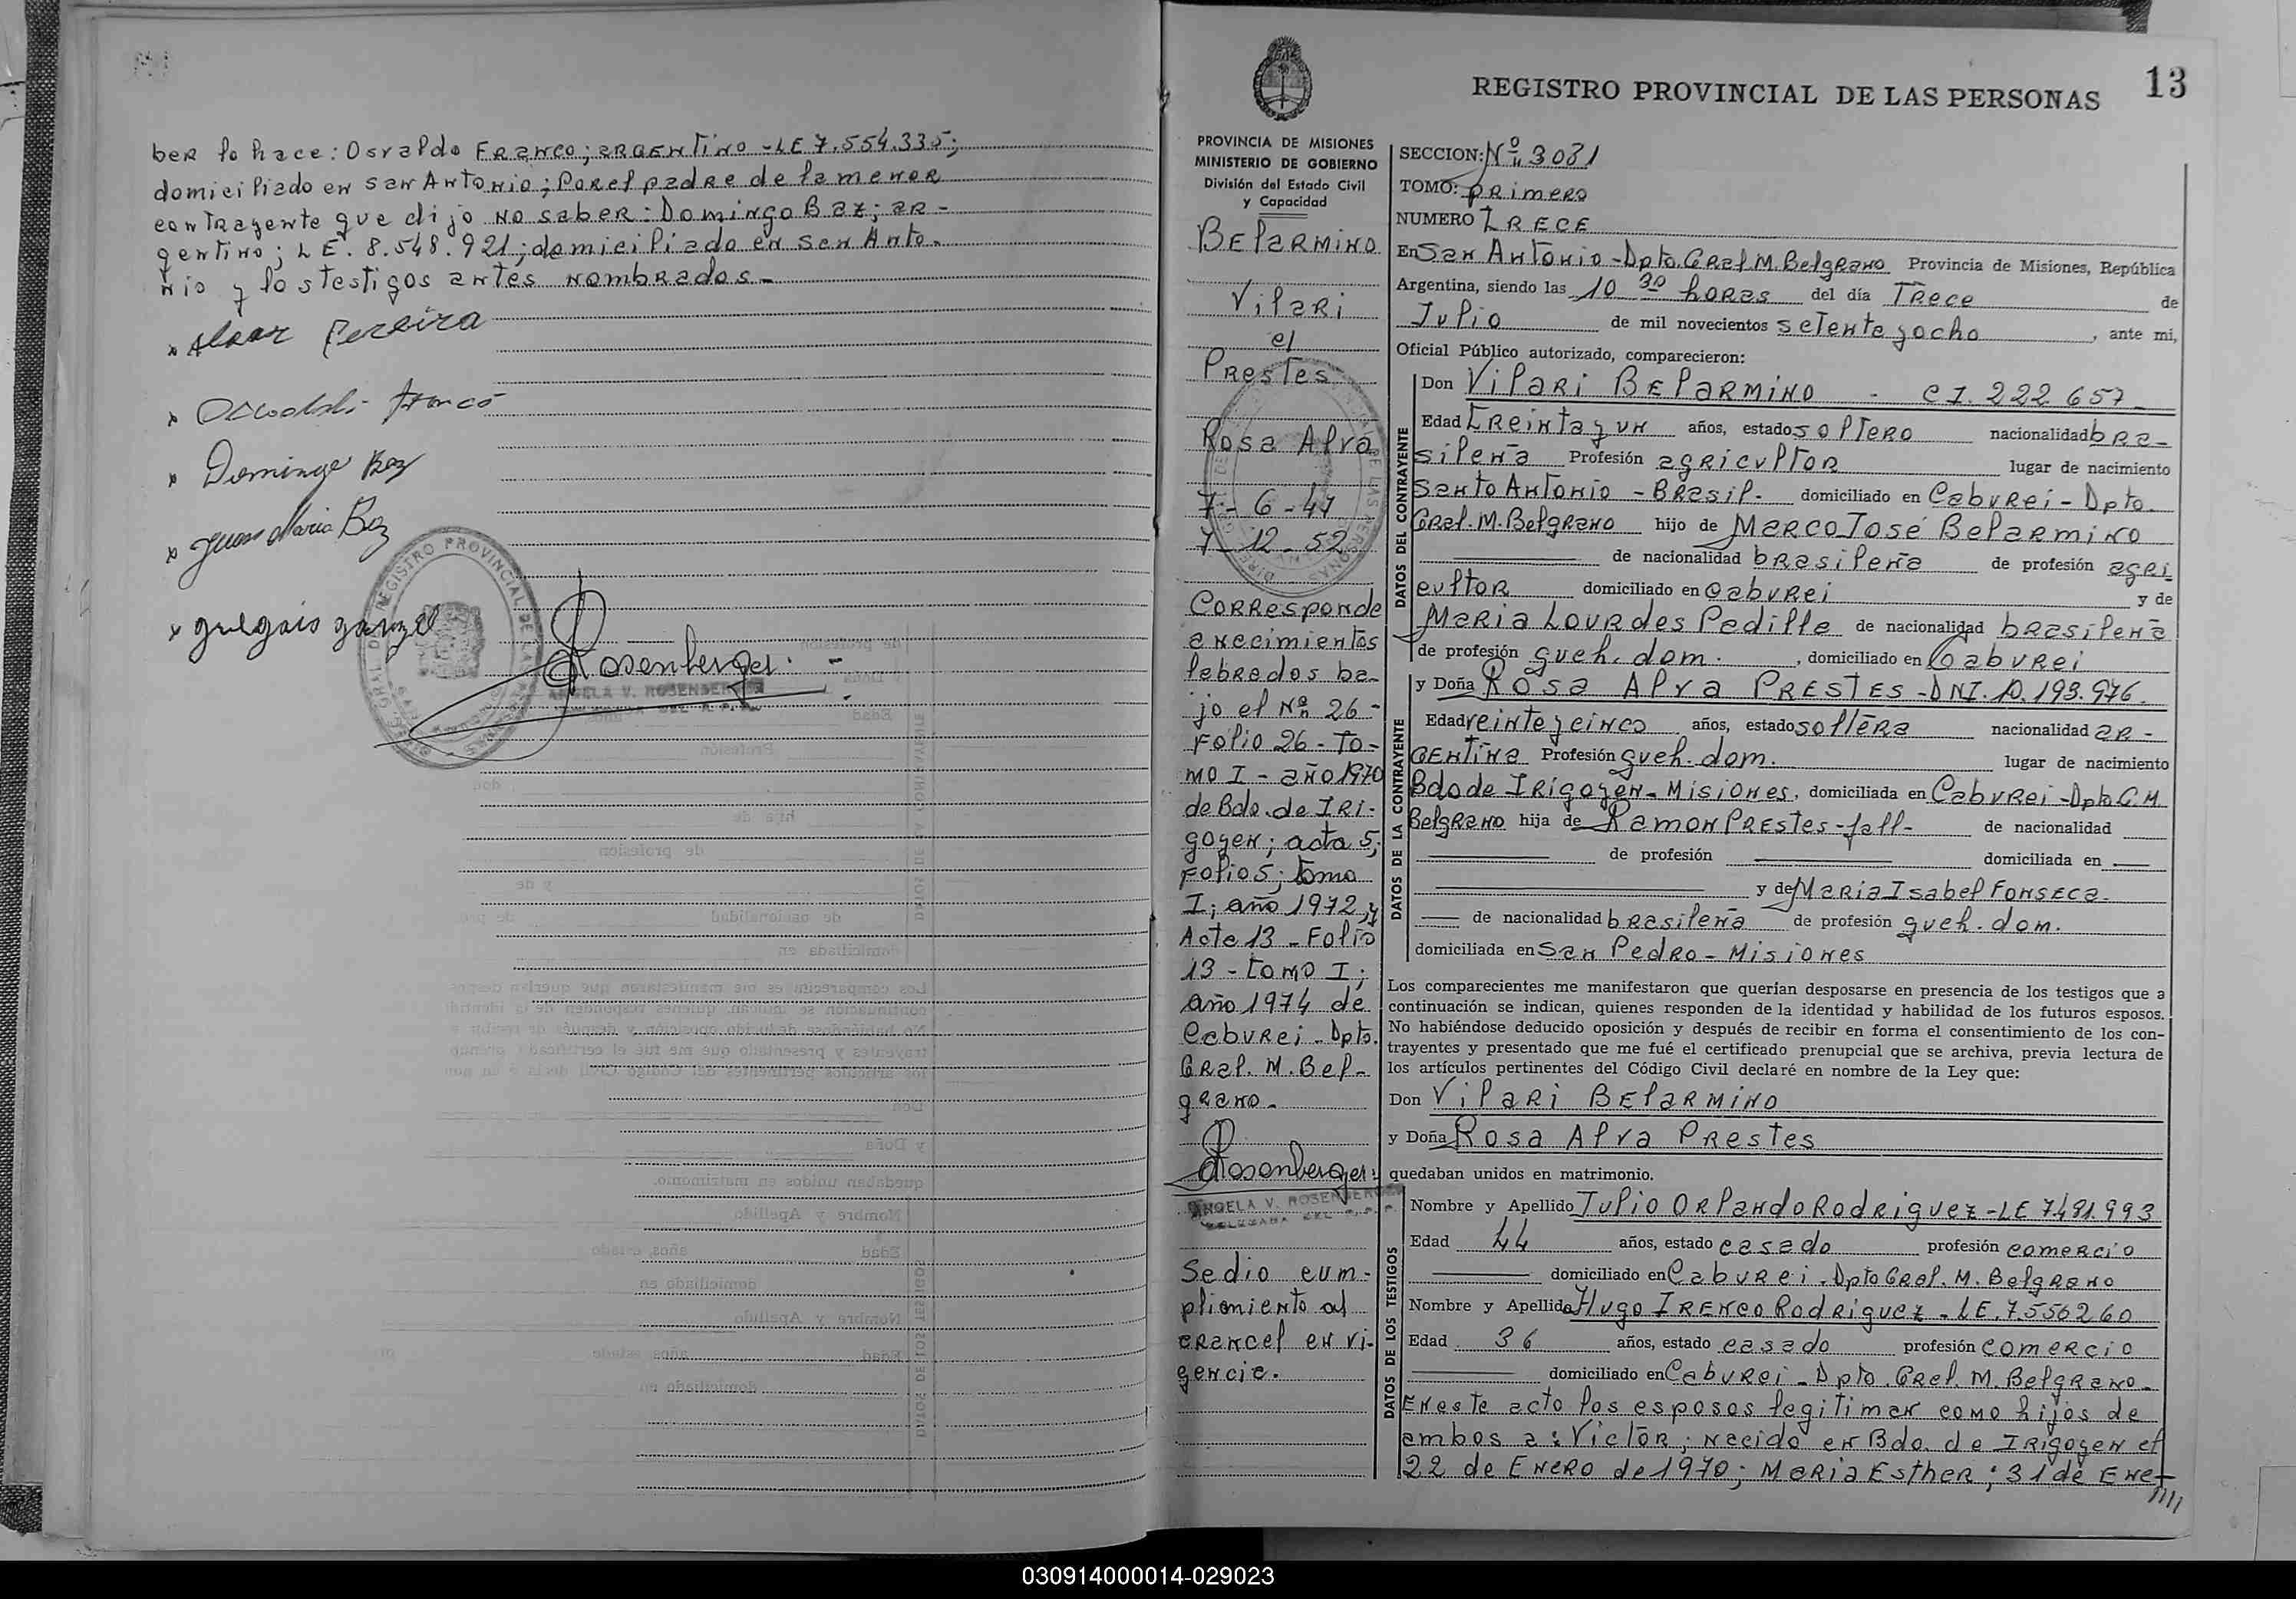 ber lo hace: Osvaldo Franco; argentino - LE 7.554.335;
domiciliado en San Antonio; Por el padre de la menor
contrayente que dijo no saber: Domingo Baz; ar-
gentino; L E. 8.548.921; domiciliado en San Anto-
nio y los testigos antes nombrados.-
Pereira
Domingo Baz
Juan Maria Baz
Rosenberger.-
ANGELA V. ROSENBERGER
REGISTRO PROVINCIAL DE LAS PERSONAS
13
PROVINCIA DE MISIONES
MINISTERIO DE GOBIERNO
División del Estado Civil
y Capacidad
Belarmino
Vilari
el
Prestes
Rosa Alva
7-6-47
7-12-52
Corresponde
a necimientos
lebrados ba-
jo el Nº 26-
Folio 26-To-
mo I - año 1970
de Bdo. de Iri-
goyen; acta 5;
Folio 5; tomo
I; año 1972, y
Acta 13 - Folio
13 - tomo I;
año 1974 de
Caburei - Dpto.
Gral. M. Bel-
grano.-
Rosenberger
ANGELA V. ROSENBERGER
Se dio cum-
plimiento al
arancel en vi-
gencia.
SECCION: Nº 3081
TOMO: primero
NUMERO TRECE
En San Antonio - Dpto. Gral. M. Belgrano Provincia de Misiones, República
Argentina, siendo las 10 30 horas del día Trece de
Julio de mil novecientos setenta y ocho, ante mi,
Oficial Público autorizado, comparecieron:
DATOS DEL CONTRAYENTE
Don Vilari Belarmino - CI. 222 657-
Edad treinta y un años, estado soltero nacionalidad bra-
sileña Profesión agricultor lugar de nacimiento
Santo Antonio - Brasil- domiciliado en Caburei - Dpto.
Gral. M. Belgrano hijo de Marco José Belarmino
de nacionalidad brasileña de profesión agri
cultor domiciliado en Caburei y de
Maria Lourdes Padille de nacionalidad brasileña
de profesión queh. dom., domiciliado en Caburei
DATOS DE LA CONTRAYENTE
y Doña Rosa Alva Prestes - DNI. 10.193.976.
Edad veinte y cinco años, estado soltera nacionalidad ar-
gentina Profesión queh. dom. lugar de nacimiento
Bdo de Irigoyen - Misiones, domiciliada en Caburei - Dpto G. M.
Belgrano hija de Ramon Prestes - fall- de nacionalidad
de profesión domiciliada en
y de Maria Isabel Fonseca-
de nacionalidad brasileña de profesión queh. dom.
domiciliada en San Pedro - Misiones
Los comparecientes me manifestaron que querían desposarse en presencia de los testigos que a
continuación se indican, quienes responden de la identidad y habilidad de los futuros esposos.
No habiéndose deducido oposición y después de recibir en forma el consentimiento de los con-
trayentes y presentado que me fué el certificado prenupcial que se archiva, previa lectura de
los artículos pertinentes del Código Civil declaré en nombre de la Ley que:
Don Vilari Belarmino
y Doña Rosa Alva Prestes
quedaban unidos en matrimonio.
DATOS DE LOS TESTIGOS
Nombre y Apellido Julio Orlando Rodriguez - LE 7481.993
Edad 44 años, estado casado profesión comercio
domiciliado en Caburei - Dpto Gral. M. Belgrano
Nombre y Apellido Hugo Ireneo Rodriguez - LE. 7.556260
Edad 36 años, estado casado profesión comercio
domiciliado en Caburei - Dpto. Gral. M. Belgrano-
En este acto los esposos legitiman como hijos de
ambos a: Victor; nacido en Bdo. de Irigoyen el
22 de Enero de 1970; Maria Esther; 31 de Ene-
030914000014-029023